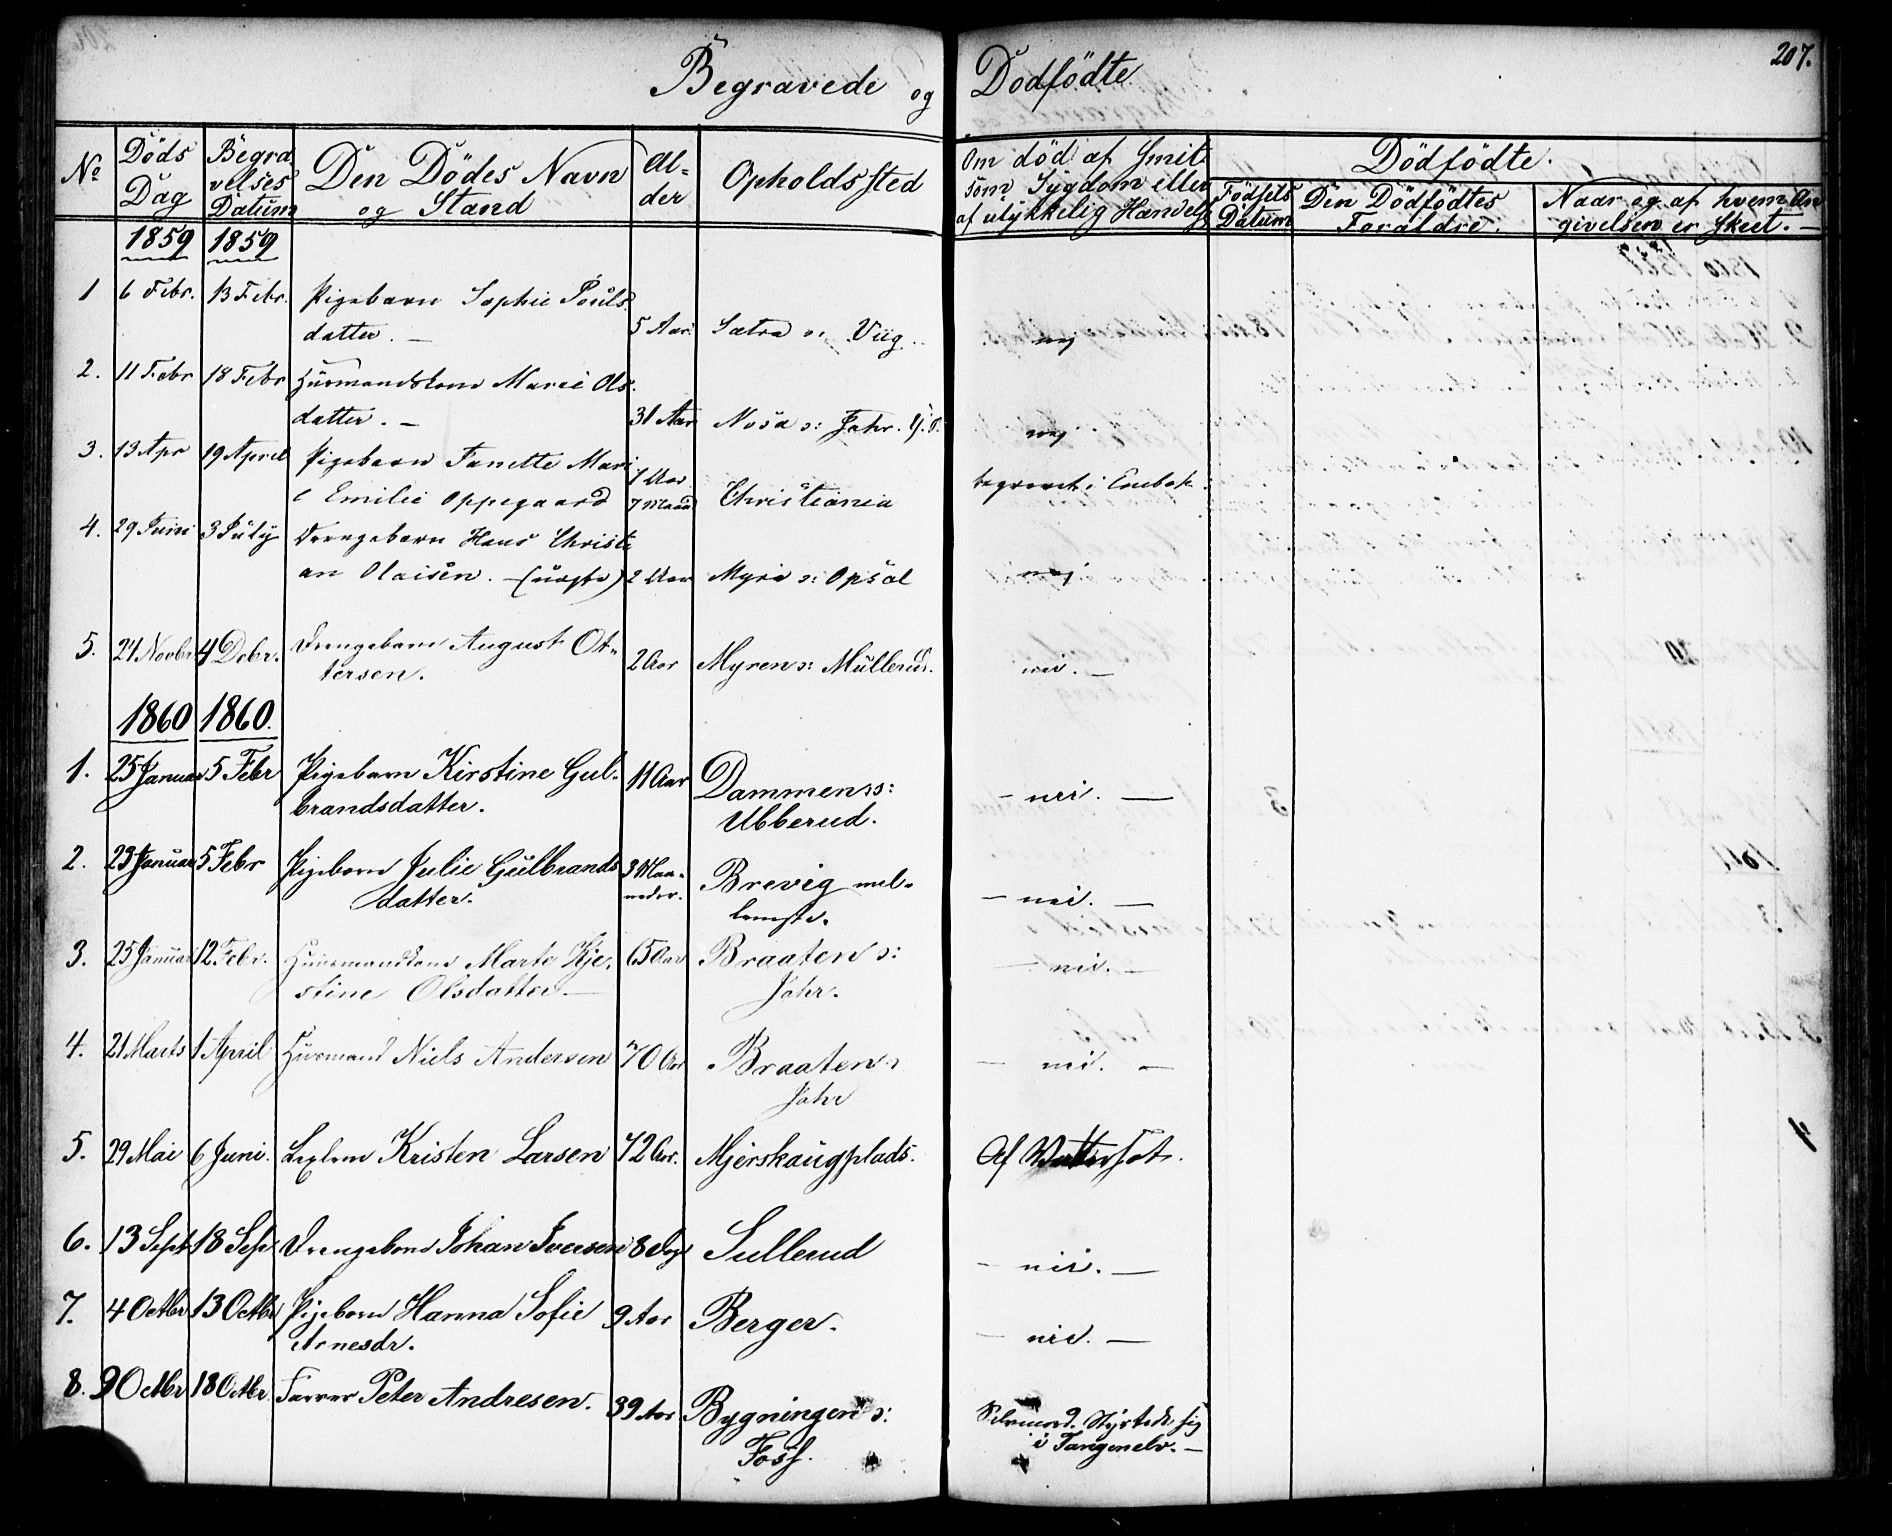 207.
Begravede og Dodfödte
No
Döds Dag
Begravelses Datum
Den Dödes Navn og Stand
Alder
Opholdssted
Om död af Smitsom Sÿgdom eller af ulykkelig Handelse
Dödfödte.
Födsels Datum
Den Dödfödtes Foraldre.
Naar og af hvem Angivelsen er skeet. —
1859 1859
1 6 Febr. 13 Febr. Pigebarn Sophie Pouls
datter. — 5 Aar Sætra s: Viig nej
2. 11 Febr 18 Febr Huusmandskone Marie Ols
datter. — 31 Aar Nosa s: Jahr. nej
3. 13 Apr 19 April Pigebarn Fanette Mari
e Emilie Oppegaard 1 Aar 7 Maand Christiania begravet i Enebak
4. 29 Juni 3 July Drengebarn Hans Christi
an Olaisen. — (uægte) 2 Aar Myra s: Opsal nej
5. 24 Novbr 4 Debr. Drengebarn August Ot„
tersen. 2 Aar Myren s: Müllerud. nei. —
1860 1860.
1. 25 Januar 5 Febr Pigebarn Kirstine Gul„
brandsdatter. 11 Aar Dammen s:
Ubberud. — nei. —
2. 23 Januar 5 Febr Pigebarn Julie Gulbrands
datter. 3 Maaneder. Brevig mel„
lemste. — nei. —
3. 25 Januar 12 Febr. Huusmandskone Marte Kje„
stine Olsdatter. — 65 Aar Braaten s:
Jahr. — nei. —
4. 21 Marts 1 April Huusmand Niels Andersen 70 Aar Braaten s
Jahr — nei. —
5. 29 Mai 6 Juni. Lexlem Kristen Larsen 72 Aar. Mjerskaugplads. Af Vattersot.
6. 13 Sept 18 Sep Drengebarn Johan Iversen 8 Dag Sullerud — nei. —
7. 4 Octbr 13 Octbr Pigebarn Hanna Sofie
Arnesdr. 9 Aar Berger. — nei. —
8. 9 Octbr 18 Octbr. Farver Peter Andresen. 39 Aar Bygningen s:
Foss. Selvmord. Styrtede sig
i Tangenelv. —